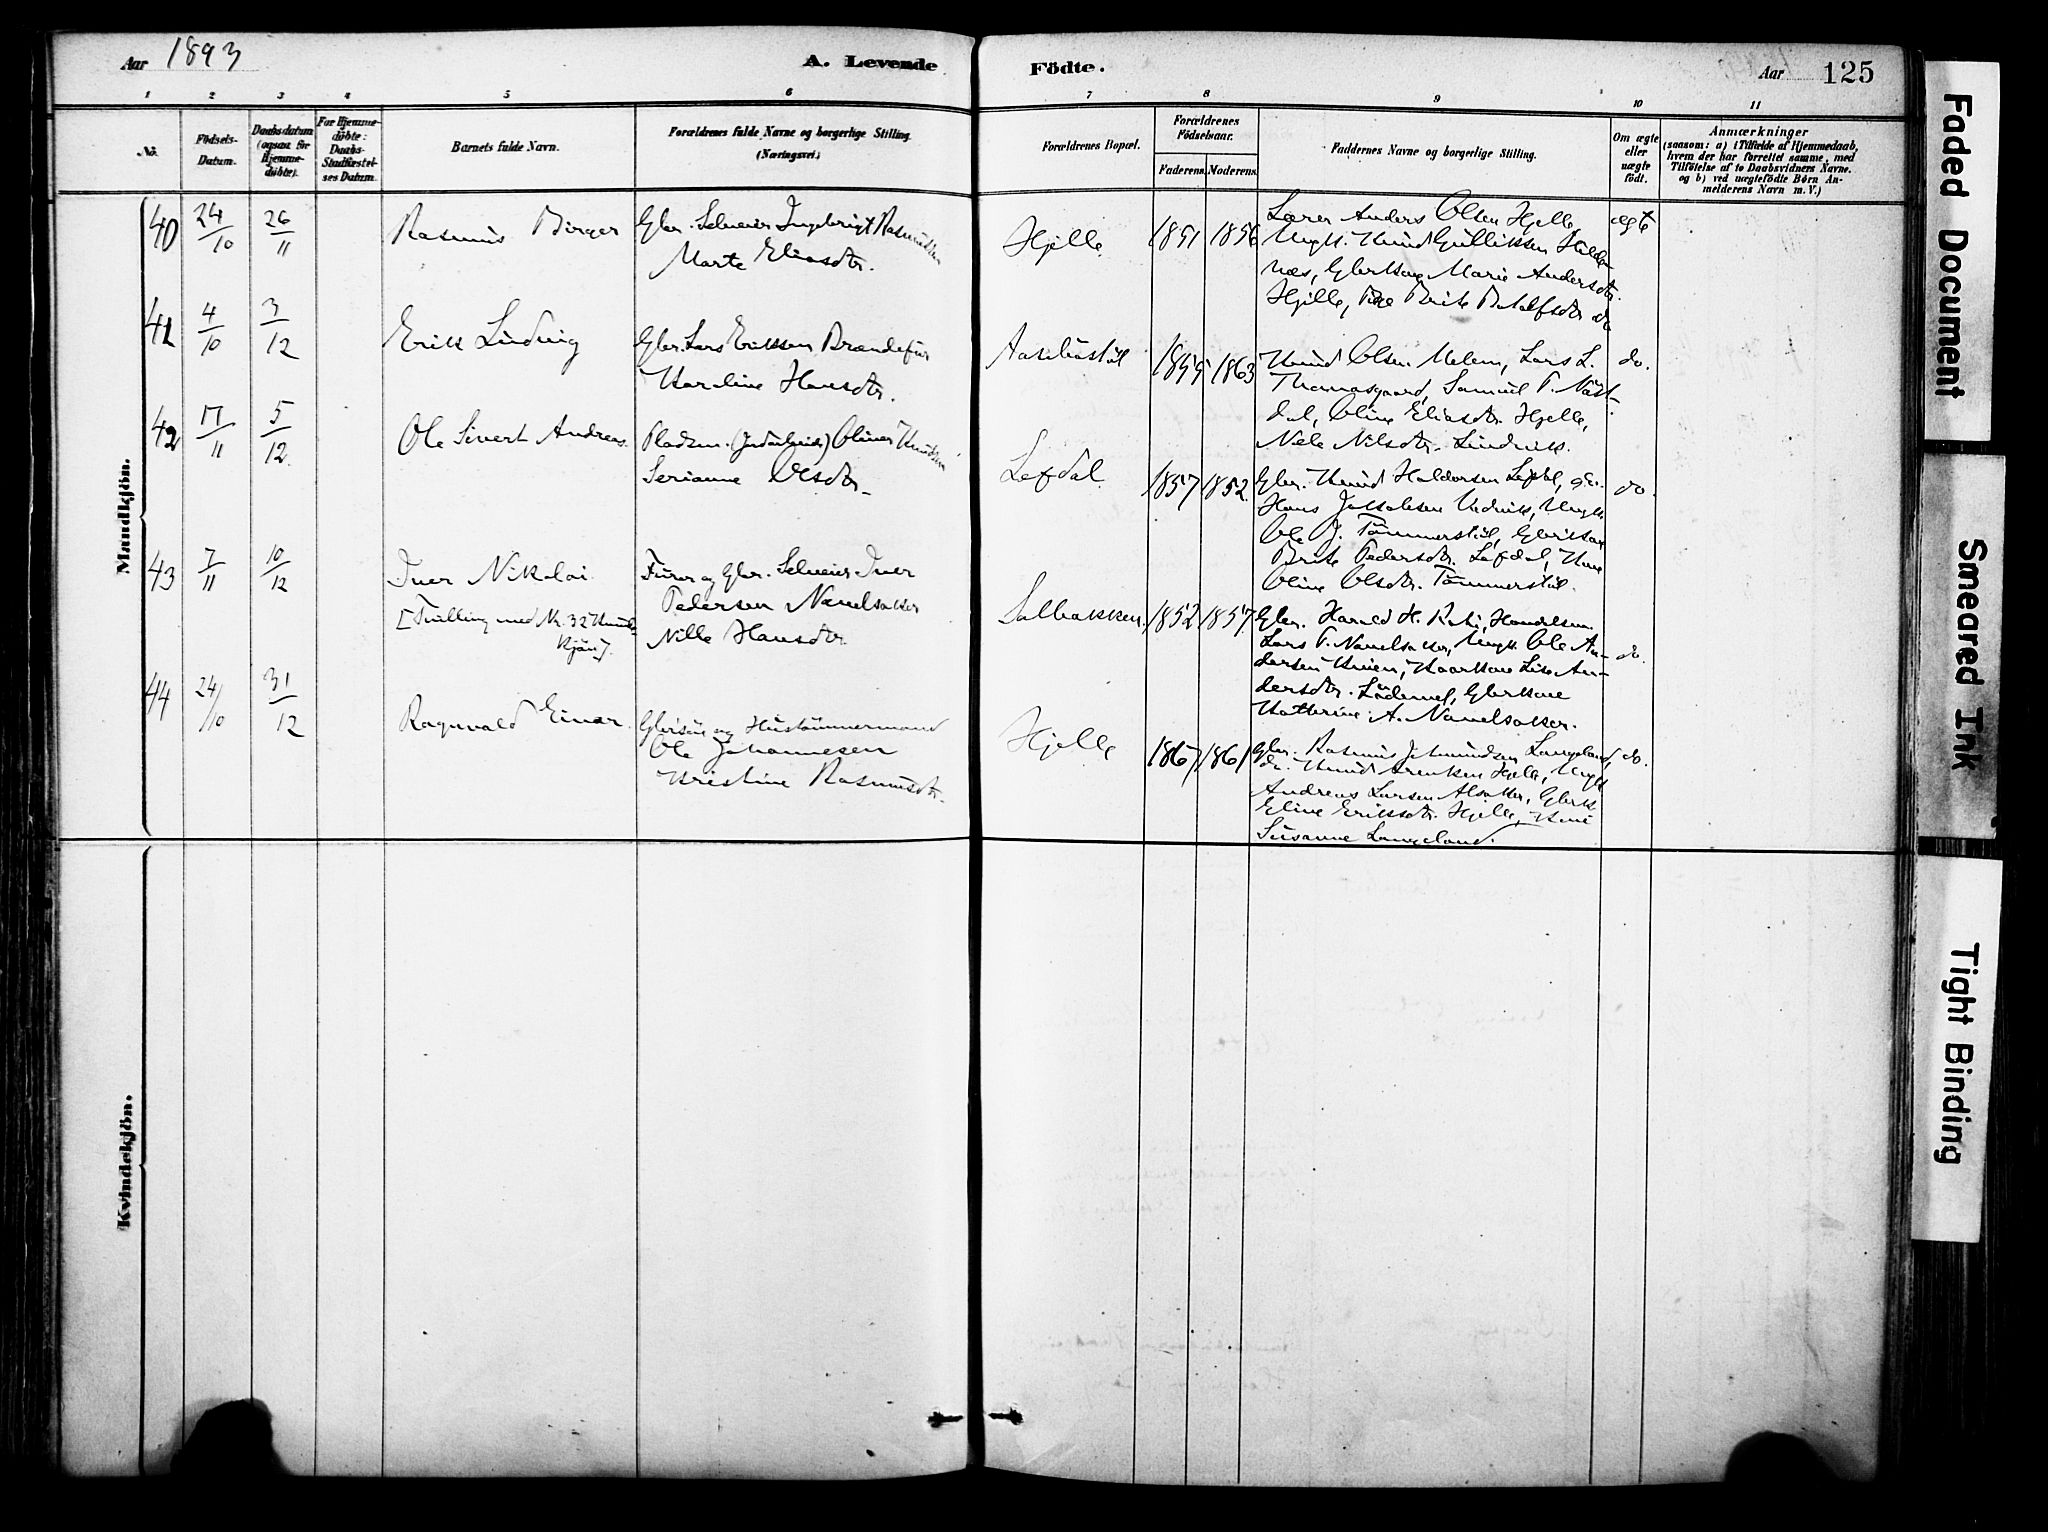 Aar 1893
A. Levende
Födte.
Aar 125
1 2 3 4 5 6
7 8 9 10 11
No.
Födsels-
Datum.
Daabsdatum
(ogsaa for
Hjemme-
döbte).
For Hjemme-
döbte:
Daabs-
Stadfæstel-
ses Datum.
Barnets fulde Navn.
Forældrenes fulde Navne og borgerlige Stilling.
(Næringsvei.)
Forældrenes Bopæl.
Forældrenes
Födselsaar.
Faderens. Moderens.
Faddernes Navne og borgerlige Stilling.
Om ægte
eller
uægte
født.
Anmærkninger
(saasom: a) i Tilfælde af Hjemmedaab,
hvem der har forrettet samme, med
Tilföielse af to Daabsvidners Navne.
og b) ved uægtefödte Börn An-
melderens Navn m. V.)
Mandkjön.
40 24/10 26/11
Rasmus Birger
Gbr. Selveier Ingebrigt Rasmussen
Marte Eliasdtr.
Hjelle
1851 1856
Lærer Anders Olsen Hjelle
Ungk. Knud Gulliksen Hilde-
næs, Gbrkone Marie Andersdtr.
Hjelle, Pige Brite Botolfsdtr do
ægte
41 4/10 3/12
Erik Ludvig
Gbr. Lars Eriksen
Karoline Hansdtr.
1855 1863
Knud Olsen Melem, Lars L.
Thomasgaard, Samuel T. Nöst-
dal, Oline Eliasdtr. Hjelle,
Nele Nilsdtr.
do.
42 17/11 5/12
Ole Sivert Andreas
Pladsm. Oliver Knudsen
Serianne Olsdtr.
Lefdal
1857 1852
Gbr. Knud Haldorsen Lefdal, do.
Hans Jakobsen Ungk.
Ole J. Tömmerstöl, Gbrkone
Brite Pedersdtr. Lefdal, Kone
Oline Olsdtr. Tömmerstöl.
do.
43 7/11 10/12
Iver Nikolai
[Tvilling med Nr. 32 Kvinde-
kjön].
Furer og Gbr. Selveier Iver
Pedersen Navelsaker
Nille Hansdtr.
Solbakken
1852 1857
Gbr. Harald H. Handelsm.
Lars P. Navelsaker, Ungk. Ole An-
dersen Kone Lise An-
dersdtr. Gbrkone
Kathrine A. Navelsaker.
do.
44 24/10 31/12
Ragnvald Einar
Gbrsön og Hustömmermand
Ole Johannesen
Kristine Rasmusdtr.
Hjelle
1867 1861
Gbr. Rasmus Langeland,
do. Knud Hjelle, Ungk
Andreas Larsen Alsaker, Gbrk
Eline Eriksdtr. Hjelle, Kone
Susanne Langeland.
do.
Kvindekjön.
Faded Document
Smeared Ink
Tight Binding